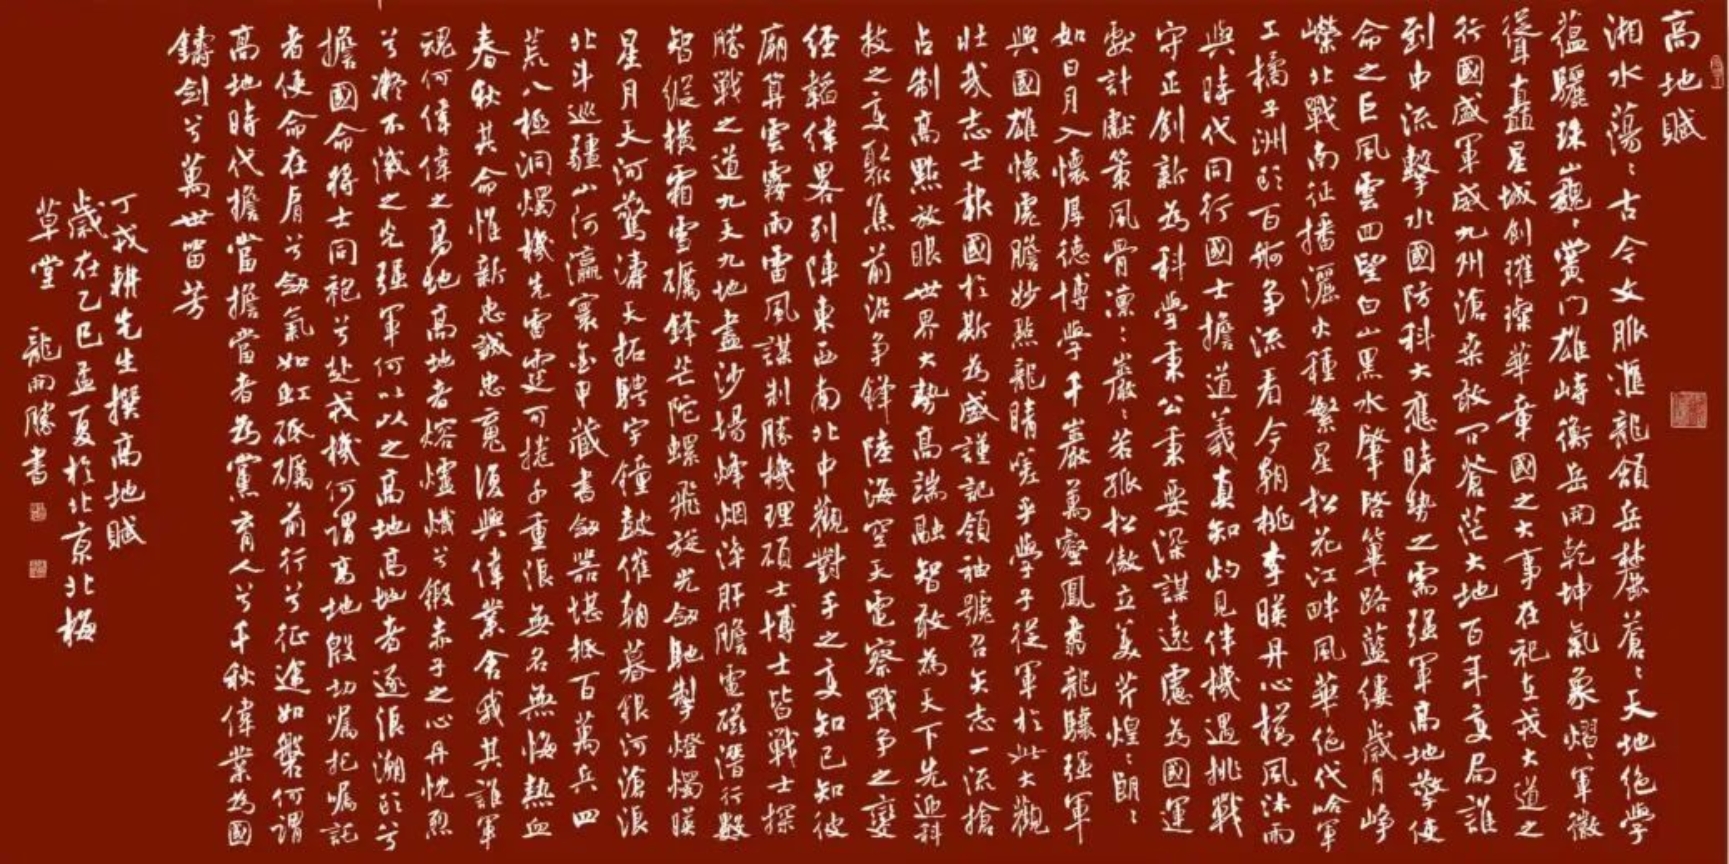 高地賦
湘水蕩：古今文脈滙龍領岳麓蒼：天地绝學
蕴驪珠巍：黌门雄峙衡岳開乾坤氣象熠：軍徽
聳矗星城創璀璨華章國之大事在祀与戎大道之
行國盛軍威九州滄桑敢问蒼茫大地百年变局誰
到中流擊水國防科大應時势之需强軍高地擎使
命之巨風雲四望白山黑水肇啓篳路藍缕歲月峥
嶸北戰南征播灑火種繁星松花江畔風華绝代哈軍
工橘子洲头百舸争流看今朝桃李暎丹心櫛風沐雨
與時代同行國士擔道義真知灼見伴機遇挑戰
守正創新為科學秉公秉要深謀遠慮為國運
献計獻策風骨凛：巖：若孤松傲立美芹煌：朗：
如日月入懷厚德博學千巖萬壑鳳翥龍驤强軍
興國雄懷虎膽妙點龍睛嗟乎學子從軍於此大觀
壯哉志士報國於斯為盛謹記領袖號召矢志一流搶
占制高點放眼世界大勢高端融智敢為天下先迎科
技之变聚焦前沿争鋒陸海空天電察戰争之變
经韜偉畧列陣東西南北中觀對手之变知己知彼
廟算雲霧雨雷風謀制勝機理碩士博士皆戰士探
勝戰之道九天九地盡沙場烽烟淬肝膽電磁潛行數
智縱横霜雪礪鋒芒陀螺飛旋光劍馳掣燈燭暎
星月天河驚濤天拓騁宇鐘鼓催朝暮银河滄浪
北斗巡疆山河瀛寰金甲藏書劍器堪抵百萬兵四
荒八極洞燭機先雷霆可捲千重浪無名無悔熱血
春秋其命惟新忠誠忠竟復興偉業舍我其誰軍
魂何偉偉之高地高地者熔爐熾兮鍛赤子之心丹忱烈
兮凝不滅之光强軍何以以之高地高地者逐浪潮头兮
擔國命将士同袍兮赴戎機何谓高地殷切嘱托囑託
者使命在肩兮劍氣如虹砥礪前行兮征途如磐何谓
高地時代擔當擔當者為黨育人兮千秋偉業為國
鑄劍兮萬世留芳
丁戎耕先生撰高地賦
歲在乙巳孟夏於北京北梅
草堂 龍開勝書